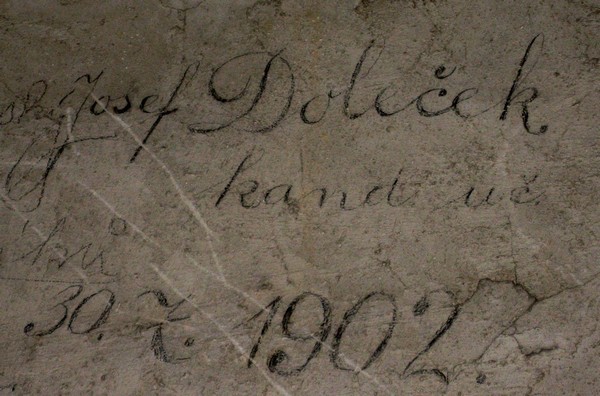 Josef Doleček
kand uč
30. 7. 1902.